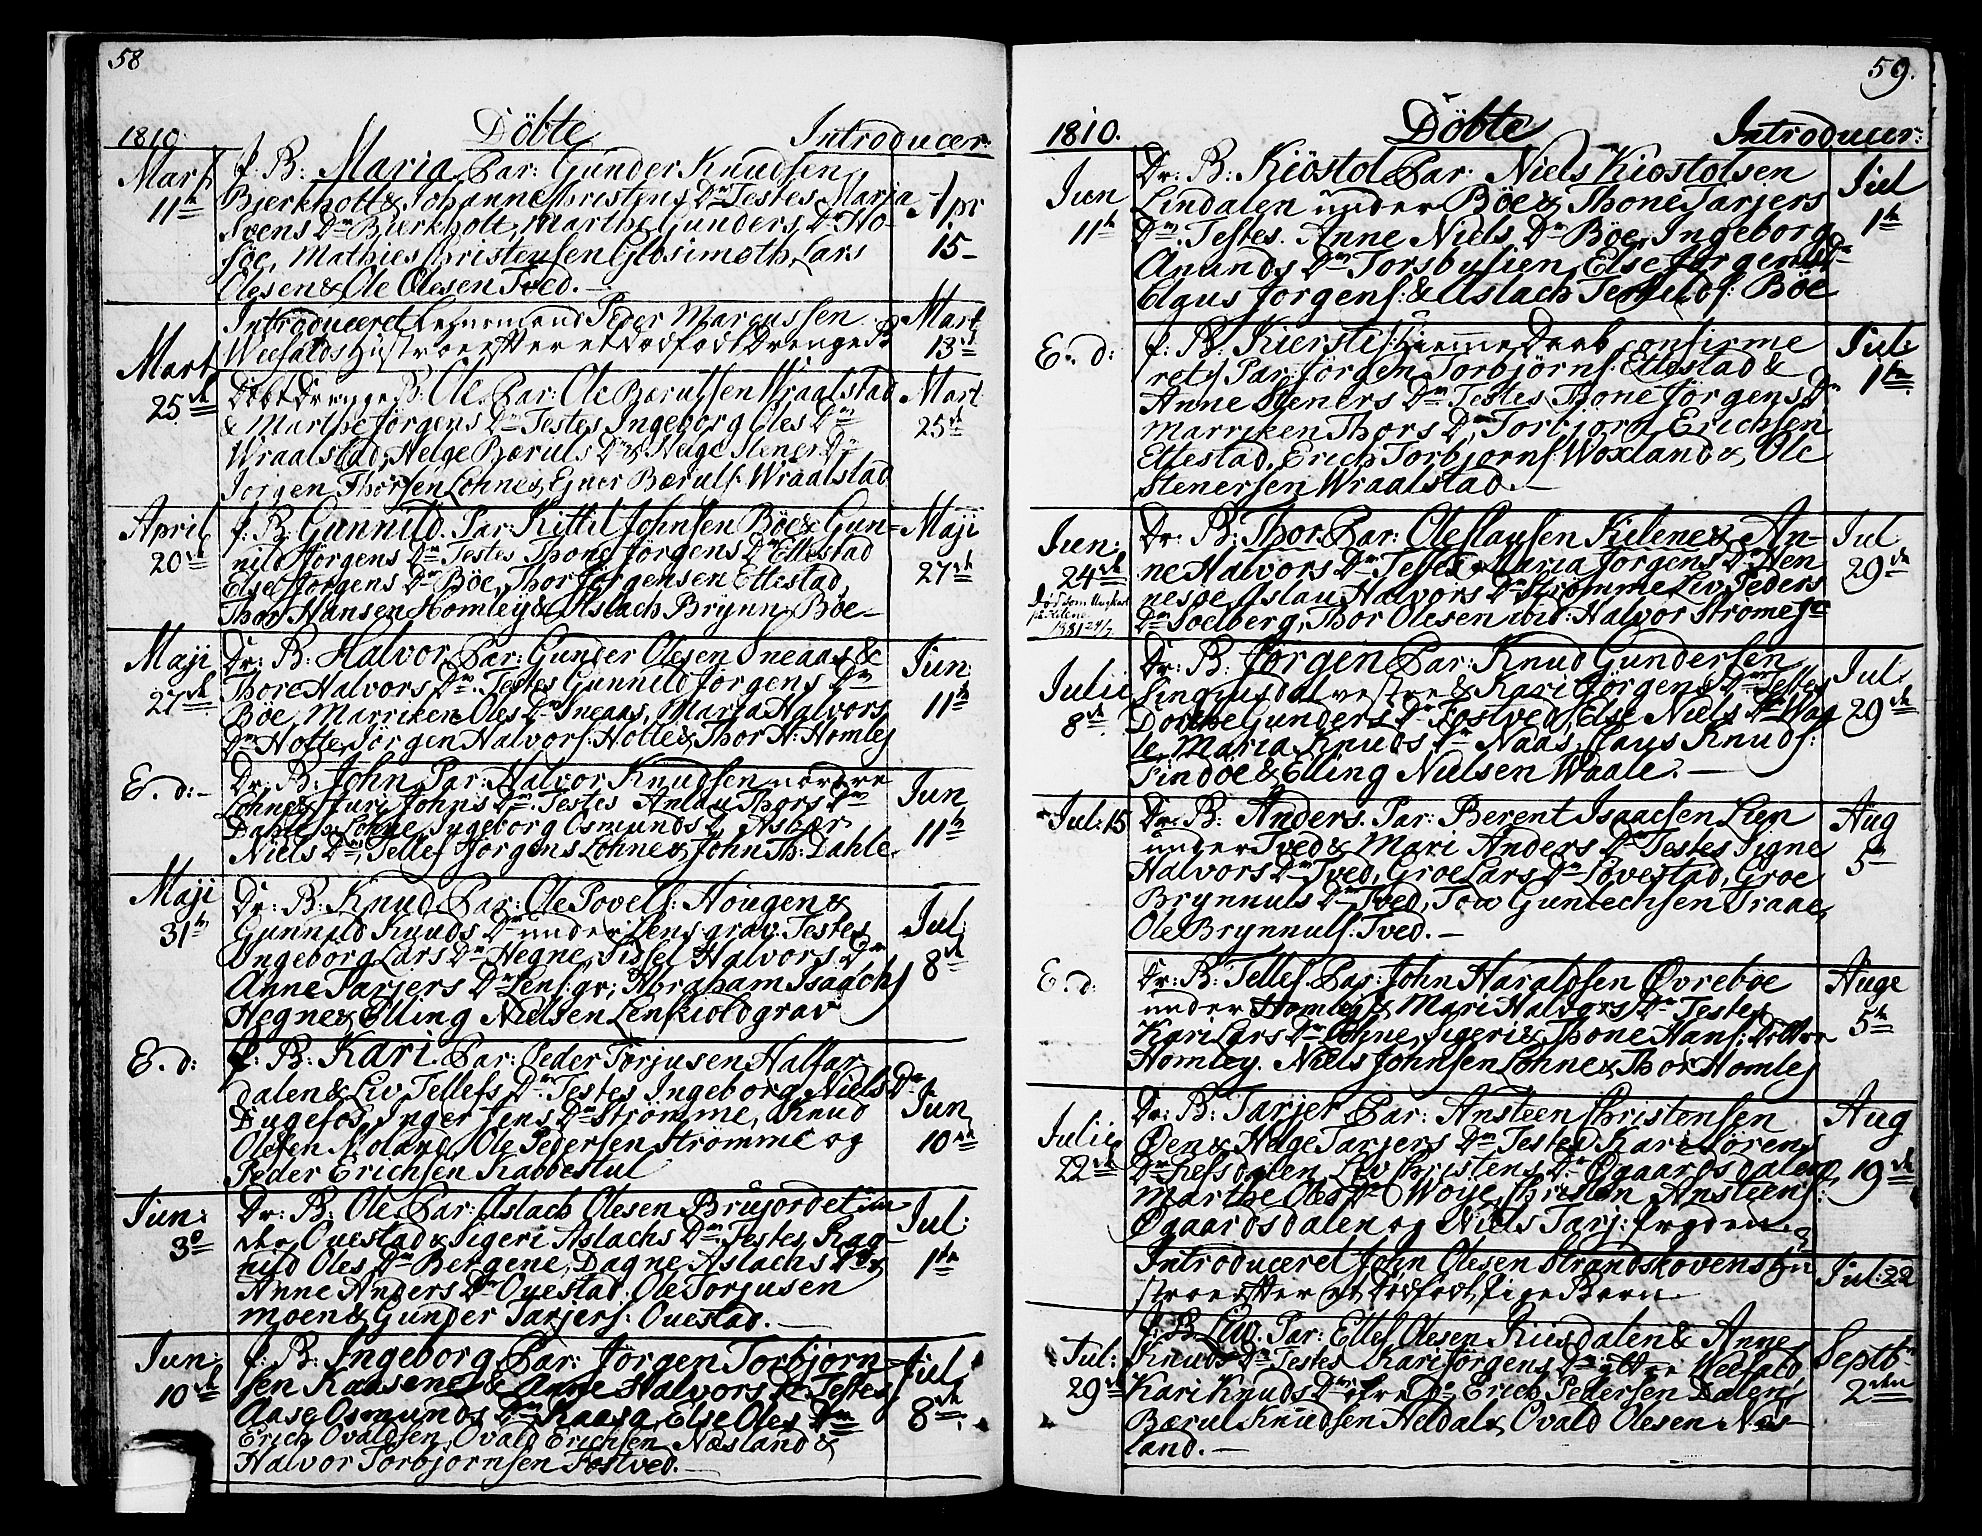 58
1810. Döbte Introducer
Mart
11te
P: B: Maria Par: Gunder Knudsen
Bjerkholt & Johanne Christens Dr Testes Maria
Svens Dr Bierkholt, Marthe Gunders Dr Ho-
föe, Mathies Christensen Glosimoth, Lars
Olesen & Ole Olesen Tved.
Apr
15
Introduceret Peder Marcussen
Weefalds Hustroe efter et dödfödt Drenge B
Mart
13
Mart
25de
Döbt Drenge B: Ole Par: Ole Bærulsen Wraalstad
& Marthe Jörgens Dr Testes Ingeborg Oles Dr
Wraalstad, Helge Bæruls Dr & Helge Steners Dr
Jörgen Thorsen Lohne & Ejner Bæruls: Wraalstad
Mart
25de
April
20de
P: B: Gunnild. Par: Kittil Johnsen Böe & Gun-
nild Jörgens Dr Testes Thone Jörgens Dr Ettestad
Else Jörgens Dr Böe, Thor Jörgensen Ettestad,
Thor Hansen Homley & Aslach Brynn: Böe
Maji
27de
Maji
27de
Dr: B: Halvor, Par: Gunder Olesen Sneaas &
Thore Halvors Dr. Testes Gunnild Jörgens Dr
Böe, Marriken Oles Dr Sneaas, Maria Halvors
Dr Hotte, Jörgen Halvors: Holte & Thor H: Homley
Jun
11te
E. d:
Dr: B: John, Par: Halvor Knudsen nordre
Lohne & Juri Johns Dr. Testes Anlau Thors Dr
Dahle, Lohne, Ingeborg Osmunds &
Niels Dr, Tellef Jörgens Lohne & John Th: Dahle
Jun
11te
Maji
31te
Dr: B: Knud Par: Ole Povels: Hougen &
Gunnild Knuds Dr under Lensgrav. Testes
Ingeborg Lars Dr Hegne, Sissel Halvors Dr
Anne Tarjers Dr Lens: gr: Abraham Isaachs
Hegne & Elling Nielsen Lenkioldgrav
Jul:
8de
E. d:
P: B: Kari. Par: Peder Torjusen Halfar
dalen & Liv Tellefs Dr Testes Ingeborg Niels Dr
Dugefos, Inger Jens Dr Strömme, Knud
Olesen Moland, Ole Pedersen Strömme og
Peder Erichsen Rabbestul
Jun
10de
Jun:
3de
Dr: B: Ole. Par: Aslach Olesen Brujordet un
der Ouestad & Sigeri Aslachs Dr. Testes Rag
nild Oles Dr Bergene, Dagne Aslachs Dr &
Anne Anders Dr Ouestad. Ole Torjusen
Moen & Gunder Tarjers: Ouestad.
Jul:
1te
Jun:
10de
P: B: Ingeborg Par: Jörgen Torbjörn
sen Kaasene & Anne Halvors Dr Testes
Aase Osmunds Dr Kaasa, Else Oles Dr
Erich Ovaldsen, Ovald Erichsen Næsland &
Halvor Torbjornsen Fostved.
Jul:
8de
59.
1810. Döbte Introducer:
Jun
11te
Dr: B: Kiöstol Par: Niels Kiostolsen
Lindalen under Böe & Thone Tarjers
Dr. Testes. Anne Niels Dr Böe, Ingeborg
Anunds Dr Torsbulien, Else Jörgens Dr
Claus Jörgens: & Aslach Terkelds: Böe
Jul
1te
E. d:
P: B: Kiersti Hiemme Daab confirme
ret, Par: Jörgen Torbjörns: Ettestad &
Anne Steners Dr Testes Thone Jörgens Dr
Marriken Thors Dr, Torbjorn Erichsen
Ettestad, Erich Torbjorns: Woxland & Ole
Stenersen Wraalstad.
Jul:
1te
Jun:
24de
Död som Ungkarl
på Kilene
1881 24/7
Dr: B: Thor. Par: Ole Slausen Kilene & An-
ne Halvors Dr Testes Maria Jörgens Dr Hen
nesöe, Aslau Halvors Dr Strömme, Liv Peders
Dr Soelberg, Thor Olesen ibid: Halvor Strömes
Jul
29de
Julii
8de
Dr: B: Jörgen Par: Knud Gundersen
Lingiisdal vestre & Kari Jörgens Dr Testes
Dorthe Gunders Dr Fostved, Else Niels Dr Waa
le, Maria Knuds Dr Naas, Claus Knuds:
Findöe & Elling Nielsen Waale.
Jul:
29de
Jul: 15
Dr: B: Anders. Par: Berent Isaacsen Lien
under Tved & Mari Anders Dr Testes Signe
Halvors Dr Tved, Groe Lars Dr Lovestad, Groe
Brynnuls Dr Tved, Tow Guntechsen Traae,
Ole Brynnuls: Tved.
Aug
5te
E. d:
Dr: B: Tellef Par: John Haraldsen Øvreböe
under Homley & Mari Halvors Dr Testes
Kari Lars Dr Lohne, Sigeri & Thone Hans: Döttre
Homley. Niels Johnsen Lohne & Thor Homley
Auge
5te
Julii
22de
Dr: B: Tarjer Par: Ansteen Christensen
Öen & Helge Tarjers Dr Testes Kari Sörens
Dr Liefsdalen, Liv Christens Dr Øgaardsdalen,
Marthe Oles Dr Woje, Christen Ansteens:
Øgaardsdalen og Niels Tarj: Frøden.
Aug
19de
Introduceret John Olesen Strandskovens Hu
stroe efter et Dödfödt Pige Barn
Jul: 22
Jul:
29de
P: B: Liv. Par: Ellef Olesen Kiisdalen & Anne
Knuds Dr Testes Kari Jörgens Dr yttre Weefald,
Kari Knuds Dr Erich Pedersen Dalen,
Bærul Knudsen Heldal & Ovald Olesen Næs
land.
Septbr
2den